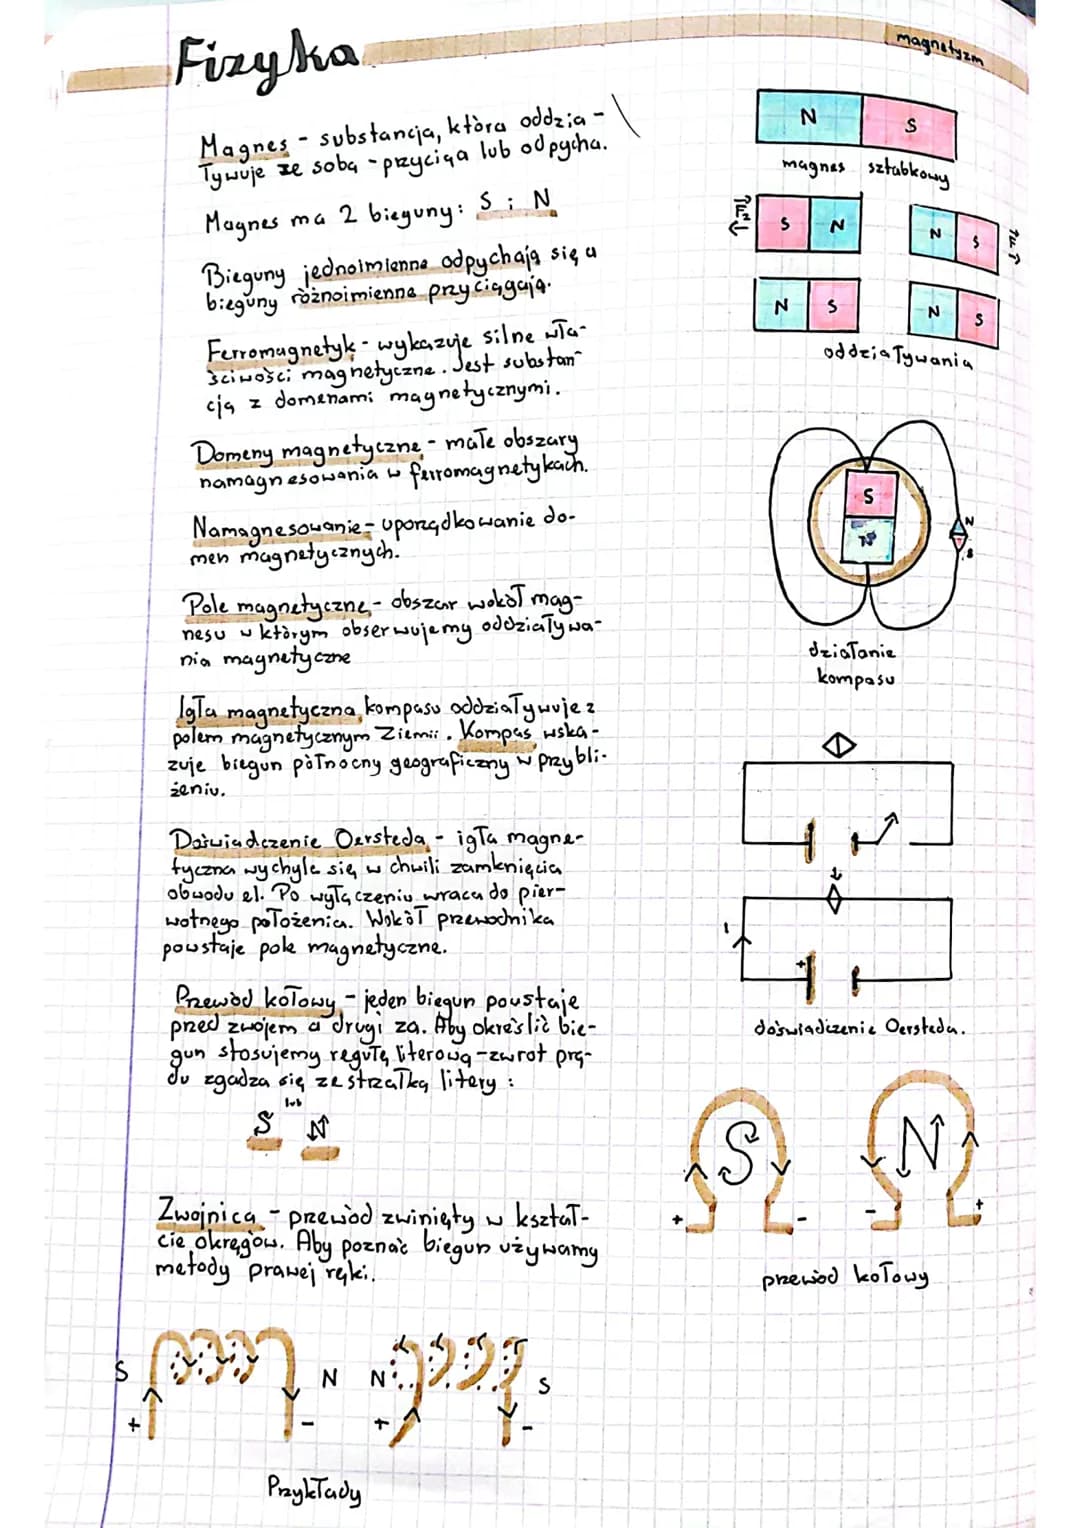 Fizyka
magnetyzm
Magnes - substancja, która oddzia-
ływuje ze sobą - przyciąga lub odpycha.
Magnes ma 2 bieguny: S i N
Bieguny jednoimienne odpychają się a
bieguny różnoimienne przyciągają.
Ferromagnetyk - wykazuje silne wła-
ściwości magnetyczne. Jest substan-
cją z domenami magnetycznymi.
Domeny magnetyczne - małe obszary
namagnesowania w ferromagnetykach.
Namagnesowanie - uporządkowanie do-
men magnetycznych.
Pole magnetyczne - obszar wokół mag-
nesu w którym obserwujemy oddziaływa-
nia magnetyczne
Igła magnetyczna kompasu oddziaływuje z
polem magnetycznym Ziemii. Kompas wska-
zuje biegun północny geograficzny w przybli-
żeniu.
Doświadczenie Oersteda - igła magne-
tyczna wychyla się w chwili zamknięcia
obwodu el. Po wyłączeniu wraca do pier-
wotnego położenia. Wokół przewodnika
powstaje pole magnetyczne.
Przewód kołowy - jeden biegun powstaje
przed zwojem a drugi za. Aby określić bie-
gun stosujemy regułę literową - zwrot prą-
du zgadza się ze strzałką litery:
S lub N
Zwojnica - przewód zwinięty w kształ-
cie okręgów. Aby poznać biegun używamy
metody prawej ręki.
S + - N
N + - S
Przykłady
N S
magnes sztabkowy
S N
N S
N S
N S
oddziaływania
S
N
N
S
działanie
kompasu
I
+
doświadczenie Oersteda.
S
N
+ -
- +
przewód kołowy